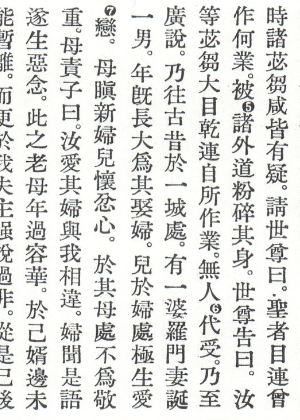 時諸苾芻咸皆有疑。請世尊曰。聖者目連曾
作何業。被❺諸外道粉碎其身。世尊告曰。汝
等苾芻大目乾連自所作業。無人❻代受。乃至
廣說。乃往古昔於一城處。有一婆羅門妻誕
一男。年旣長大爲其娶婦。兒於婦處極生愛
❼戀。母瞋新婦兒懷忿心。於其母處不爲敬
重。母責子曰。汝愛其婦與我相違。婦聞是語
遂生惡念。此之老母年過容華。於己婿邊未
能暫離。而更於我夫主强說過非。從是已後